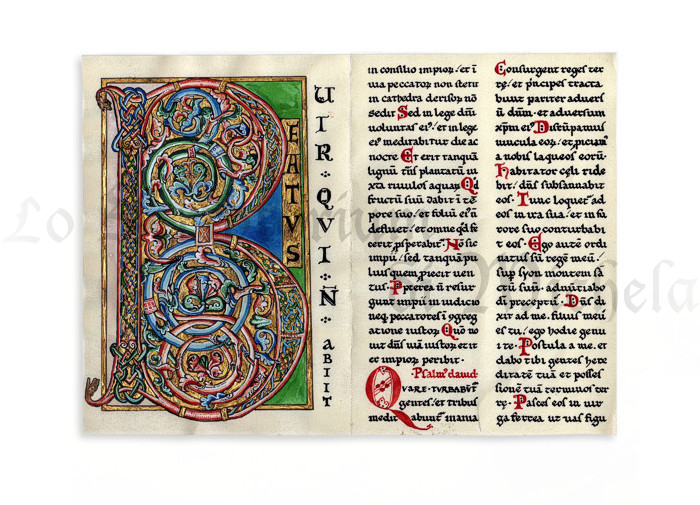 BEATVS
VIR · QVI · N̄
ABIIT
in consilio impior̄ / et ī
uia peccator non stetit
in cathedra derisor nō
sedit Sed in lege dn̄i
uoluntas ei⁹ / et in lege
ei⁹ meditabitur die ac
nocte Et erit tanquā
lignū t̄n̄s plantatū iu
xta riuulos aquar̄ Qd̄
fructū suū dabit ī tē
pore suo Et foliū ei⁹ n̄
defluet / et omne qd̄ fe
cerit p̄sperabit᷑ · No sic
impii / sed tanquā pu
luis quem p̄iecit uen
tus · Pp̄terea n̄ resur
gunt impii in iudicio
neq; peccatores ī ɔgreg
atione iustor̄ Quo no
uit dn̄s uiā iustor̄ et it
er impior peribit ·
· Psalm⁹ dauid
QVARE · TVRBABVT̄
gentes / et tribus
meditabunt᷑ inania
Consurgent reges ter
rę / et p̄ncipes tracta
bunt pariter aduers
ū dūm · et aduersum
xp̄m ei⁹ Disrūpamus
uincula eor̄ / et p̄iciam⁹
a nobis laqueos eorū ·
habitator cęli ride
bit / dn̄s subsannabit
eos · Tunc loquet᷑ ad
eos in ira sua / et in fu
rore suo conturbabi
t eos · Ego autē ordi
natus sū regē meū /
sup syon montem sā
ctū suū · adnūtiabo
dī preceptū · Dn̄s di
xit ad me / filius meus
es tu / ego hodie genu
i te · Postula a me / et
dabo tibi gentes here
ditatē tuā et posses
sionē tuā terminos ter
rę · Pasces eos in uir
ga ferrea ut uas figu